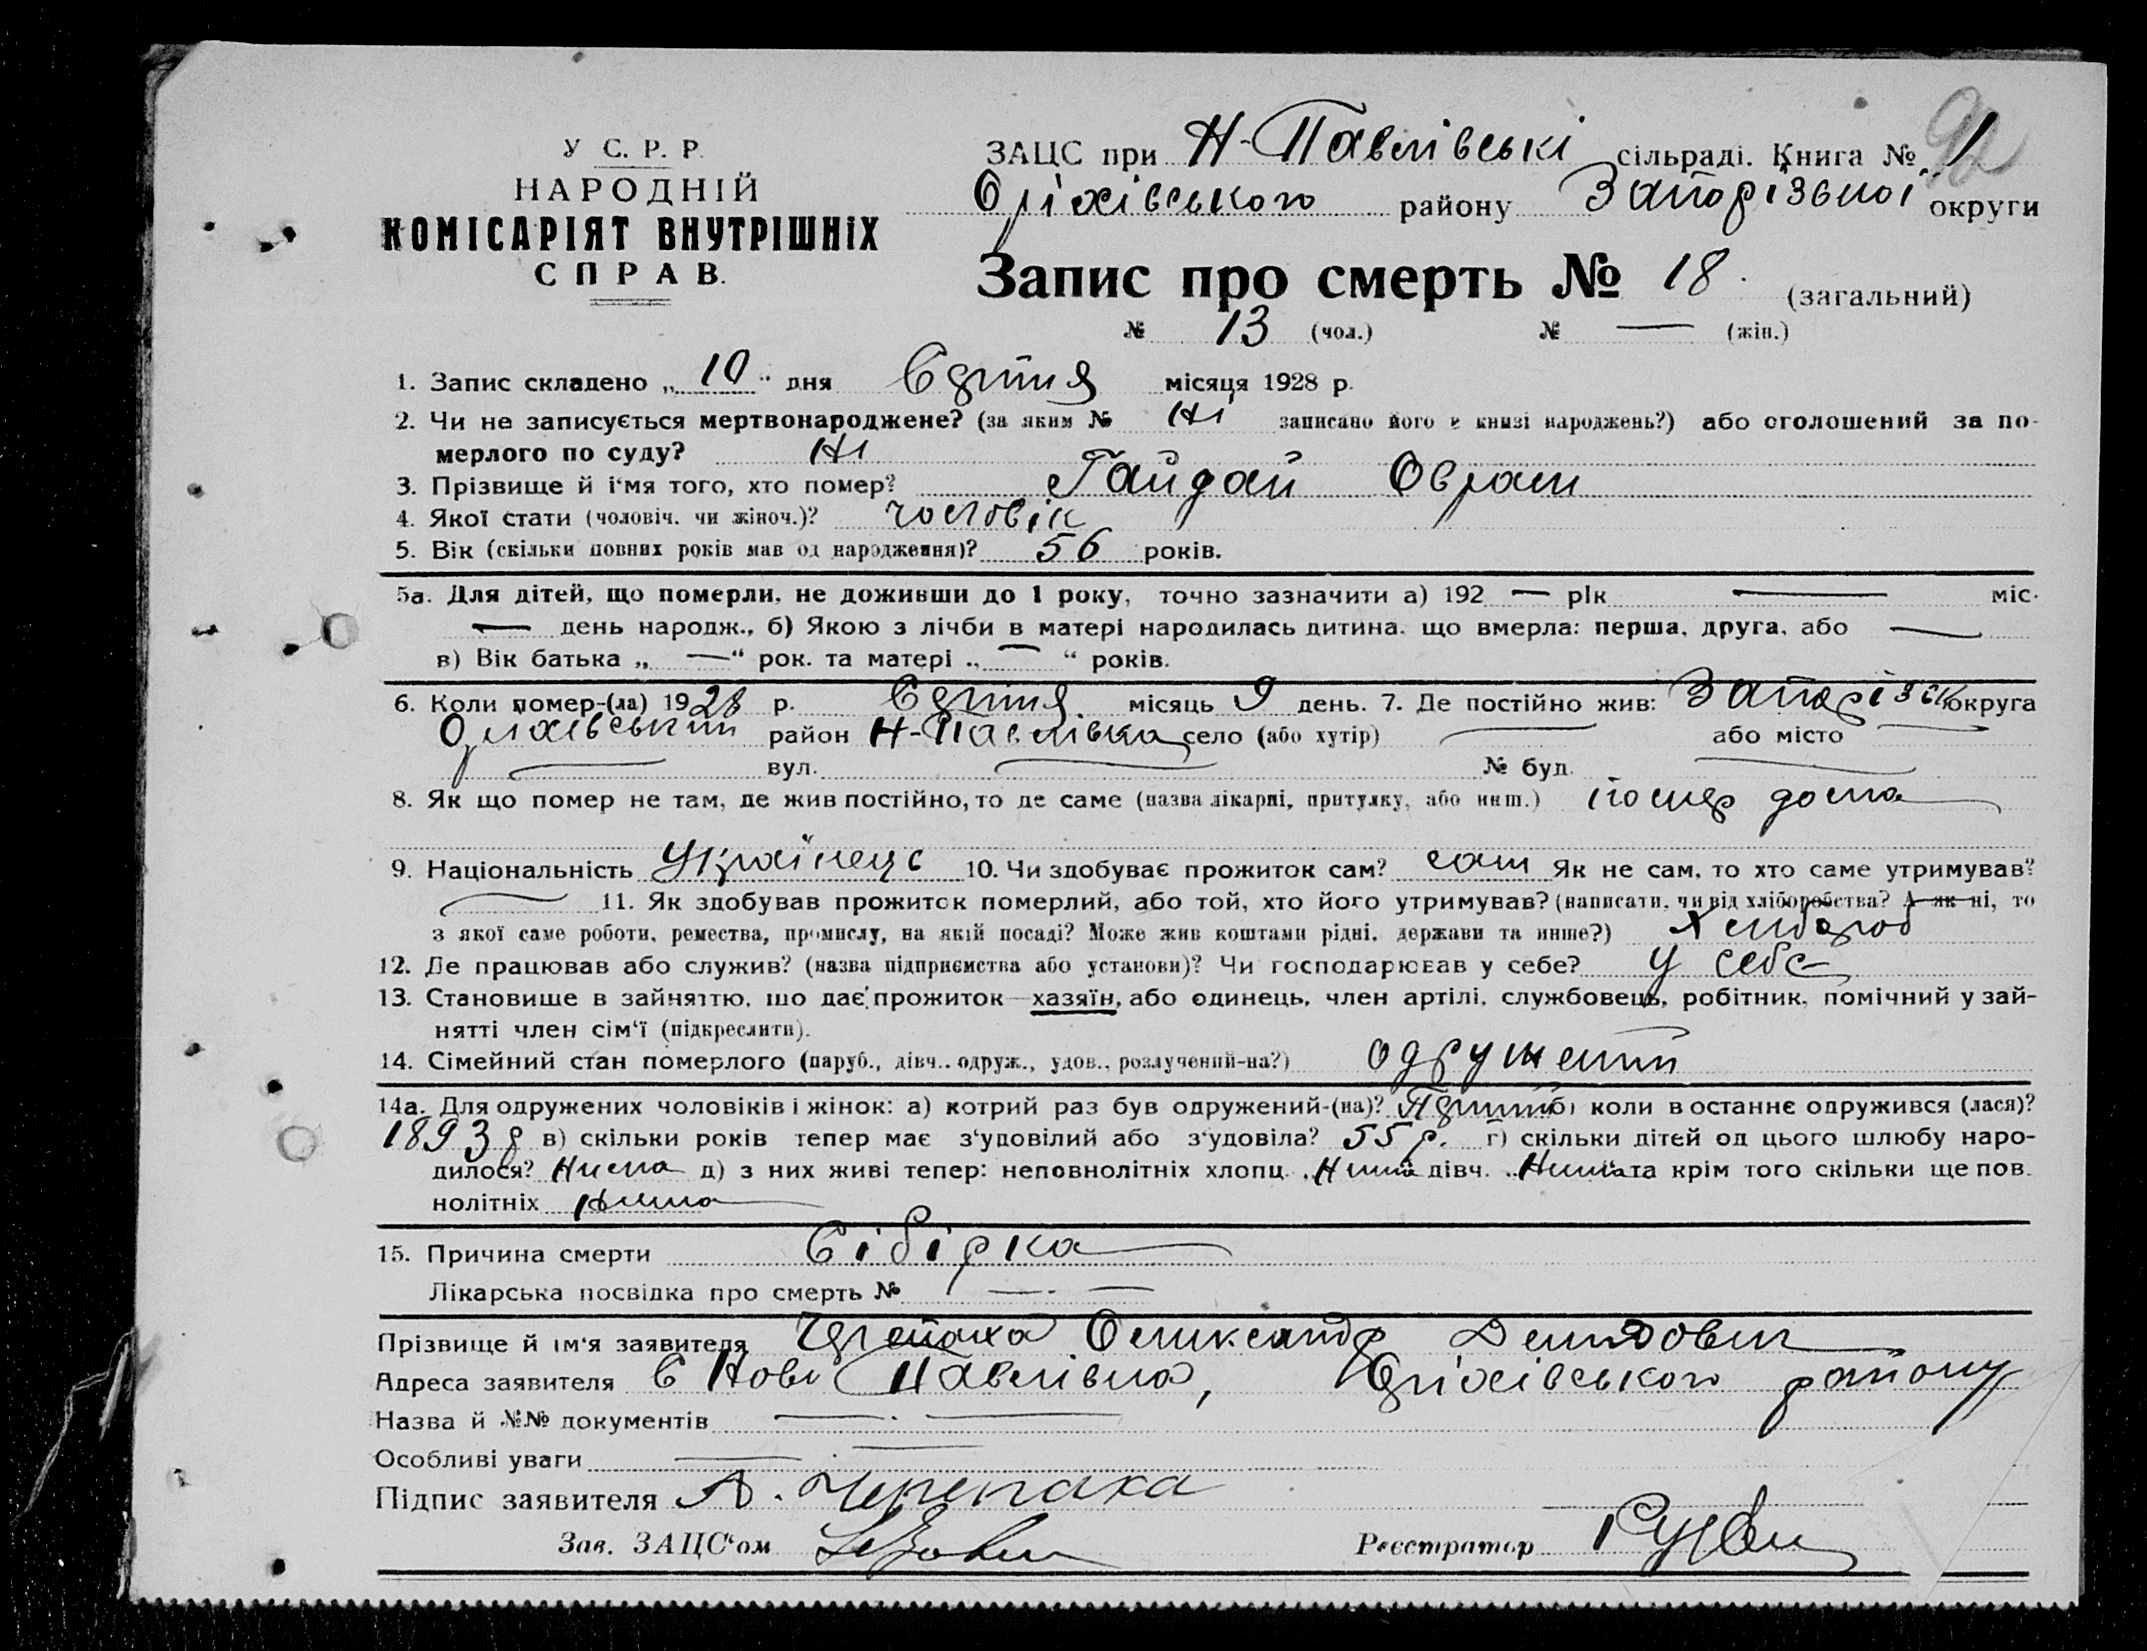 У С. Р. Р.
НАРОДНІЙ
КОМІСАРІЯТ ВНУТРІШНІХ
СПРАВ.
92
ЗАЦС при Н-Павлівські сільраді. Книга № 1
Оріхівського району Запорізької округи
Запис про смерть № 18. (загальний)
№ 13 (чол.) № — (жін.)
1. Запис складено „ 10 “ дня Серпня місяця 1928 р.
2. Чи не записується мертвонароджене? (за яким № Ні записано його в книзі народжень?) або оголошений за по-
мерлого по суду? Ні
3. Прізвище й ім'я того, хто помер? Гайдай Оврам
4. Якої стати (чоловіч. чи жіноч.)? чоловік
5. Вік (скільки повних років мав од народження)? 56 років.
5а. Для дітей, що померли, не доживши до 1 року, точно зазначити а) 192 — рік — міс.
— день народж., б) Якою з лічби в матері народилась дитина, що вмерла: перша, друга, або —
в) Вік батька „ — “ рок. та матері „ — “ років.
6. Коли помер-(ла) 1928 р. Серпня місяць 9 день. 7. Де постійно жив: Запорізьк округа
Оріхівський район Н-Павлівка село (або хутір) — або місто —
— вул. — № буд. —
8. Як що помер не там, де жив постійно, то де саме (назва лікарні, притулку, або инш.) помер дома
9. Національність Українець 10. Чи здобуває прожиток сам? сам Як не сам, то хто саме утримував?
— 11. Як здобував прожиток померлий, або той, хто його утримував? (написати, чи від хліборобства? А як ні, то
з якої саме роботи, ремества, промислу, на якій посаді? Може жив коштами рідні, держави та инше?) Хлибороб
12. Де працював або служив? (назва підприємства або установи)? Чи господарював у себе? у себе
13. Становище в зайняттю, що дає прожиток—хазяїн, або одинець, член артілі, службовець, робітник, помічний у зай-
нятті член сім'ї (підкреслити).
14. Сімейний стан померлого (паруб., дівч., одруж., удов., розлучений-на?) одружений
14а. Для одружених чоловіків і жінок: а) котрий раз був одружений-(на)? Перший б) коли востаннє одружився (лася)?
1893 р в) скільки років тепер має з'удовілий або з'удовіла? 55 р. г) скільки дітей од цього шлюбу наро-
дилося? Нима д) з них живі тепер: неповнолітніх хлопц. Нима дівч. Нима та крім того скільки ще пов.
нолітніх нима
15. Причина смерти Сібірка
Лікарська посвідка про смерть № — . —
Прізвище й ім'я заявителя Черепаха Олександр Демидович
Адреса заявителя С Ново Павлівка, Оріхівського району
Назва й №№ документів — . —
Особливі уваги — . —
Підпис заявителя А. Черепаха
Зав. ЗАЦС'ом Реєстратор